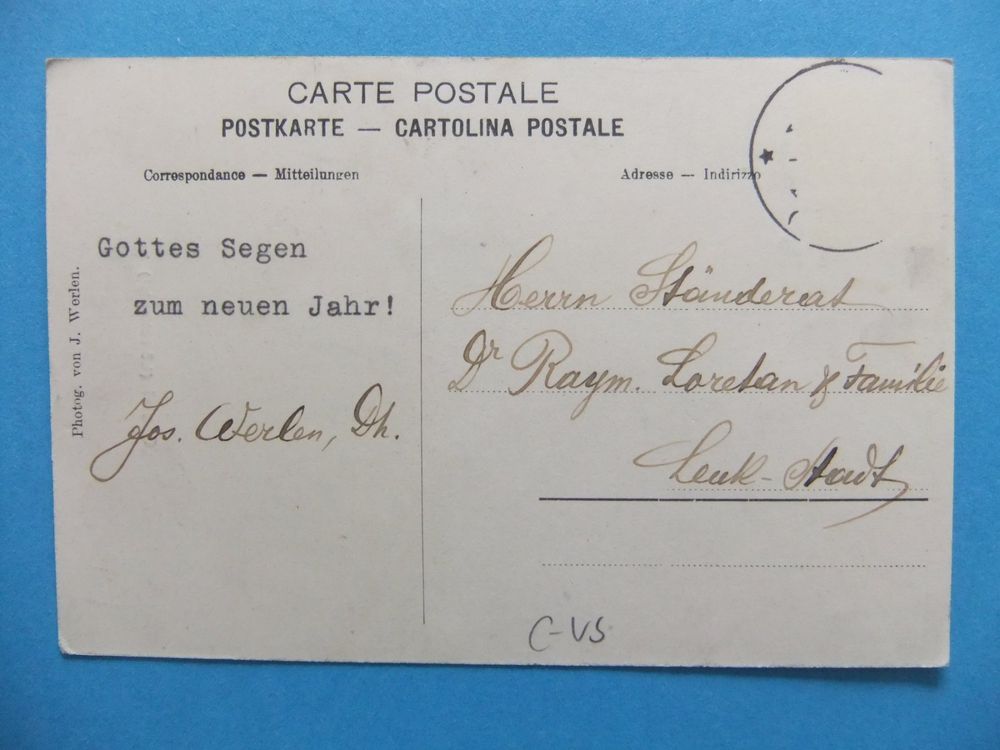 CARTE POSTALE
POSTKARTE — CARTOLINA POSTALE
Correspondance — Mitteilungen
Adresse — Indirizzo
Gottes Segen
zum neuen Jahr!
Jos. Werlen, Dh.
Photog. von J. Werlen.
Herrn Ständerat
Dr Raym. Loretan & Familie
Leuk-Stadt
C-VS